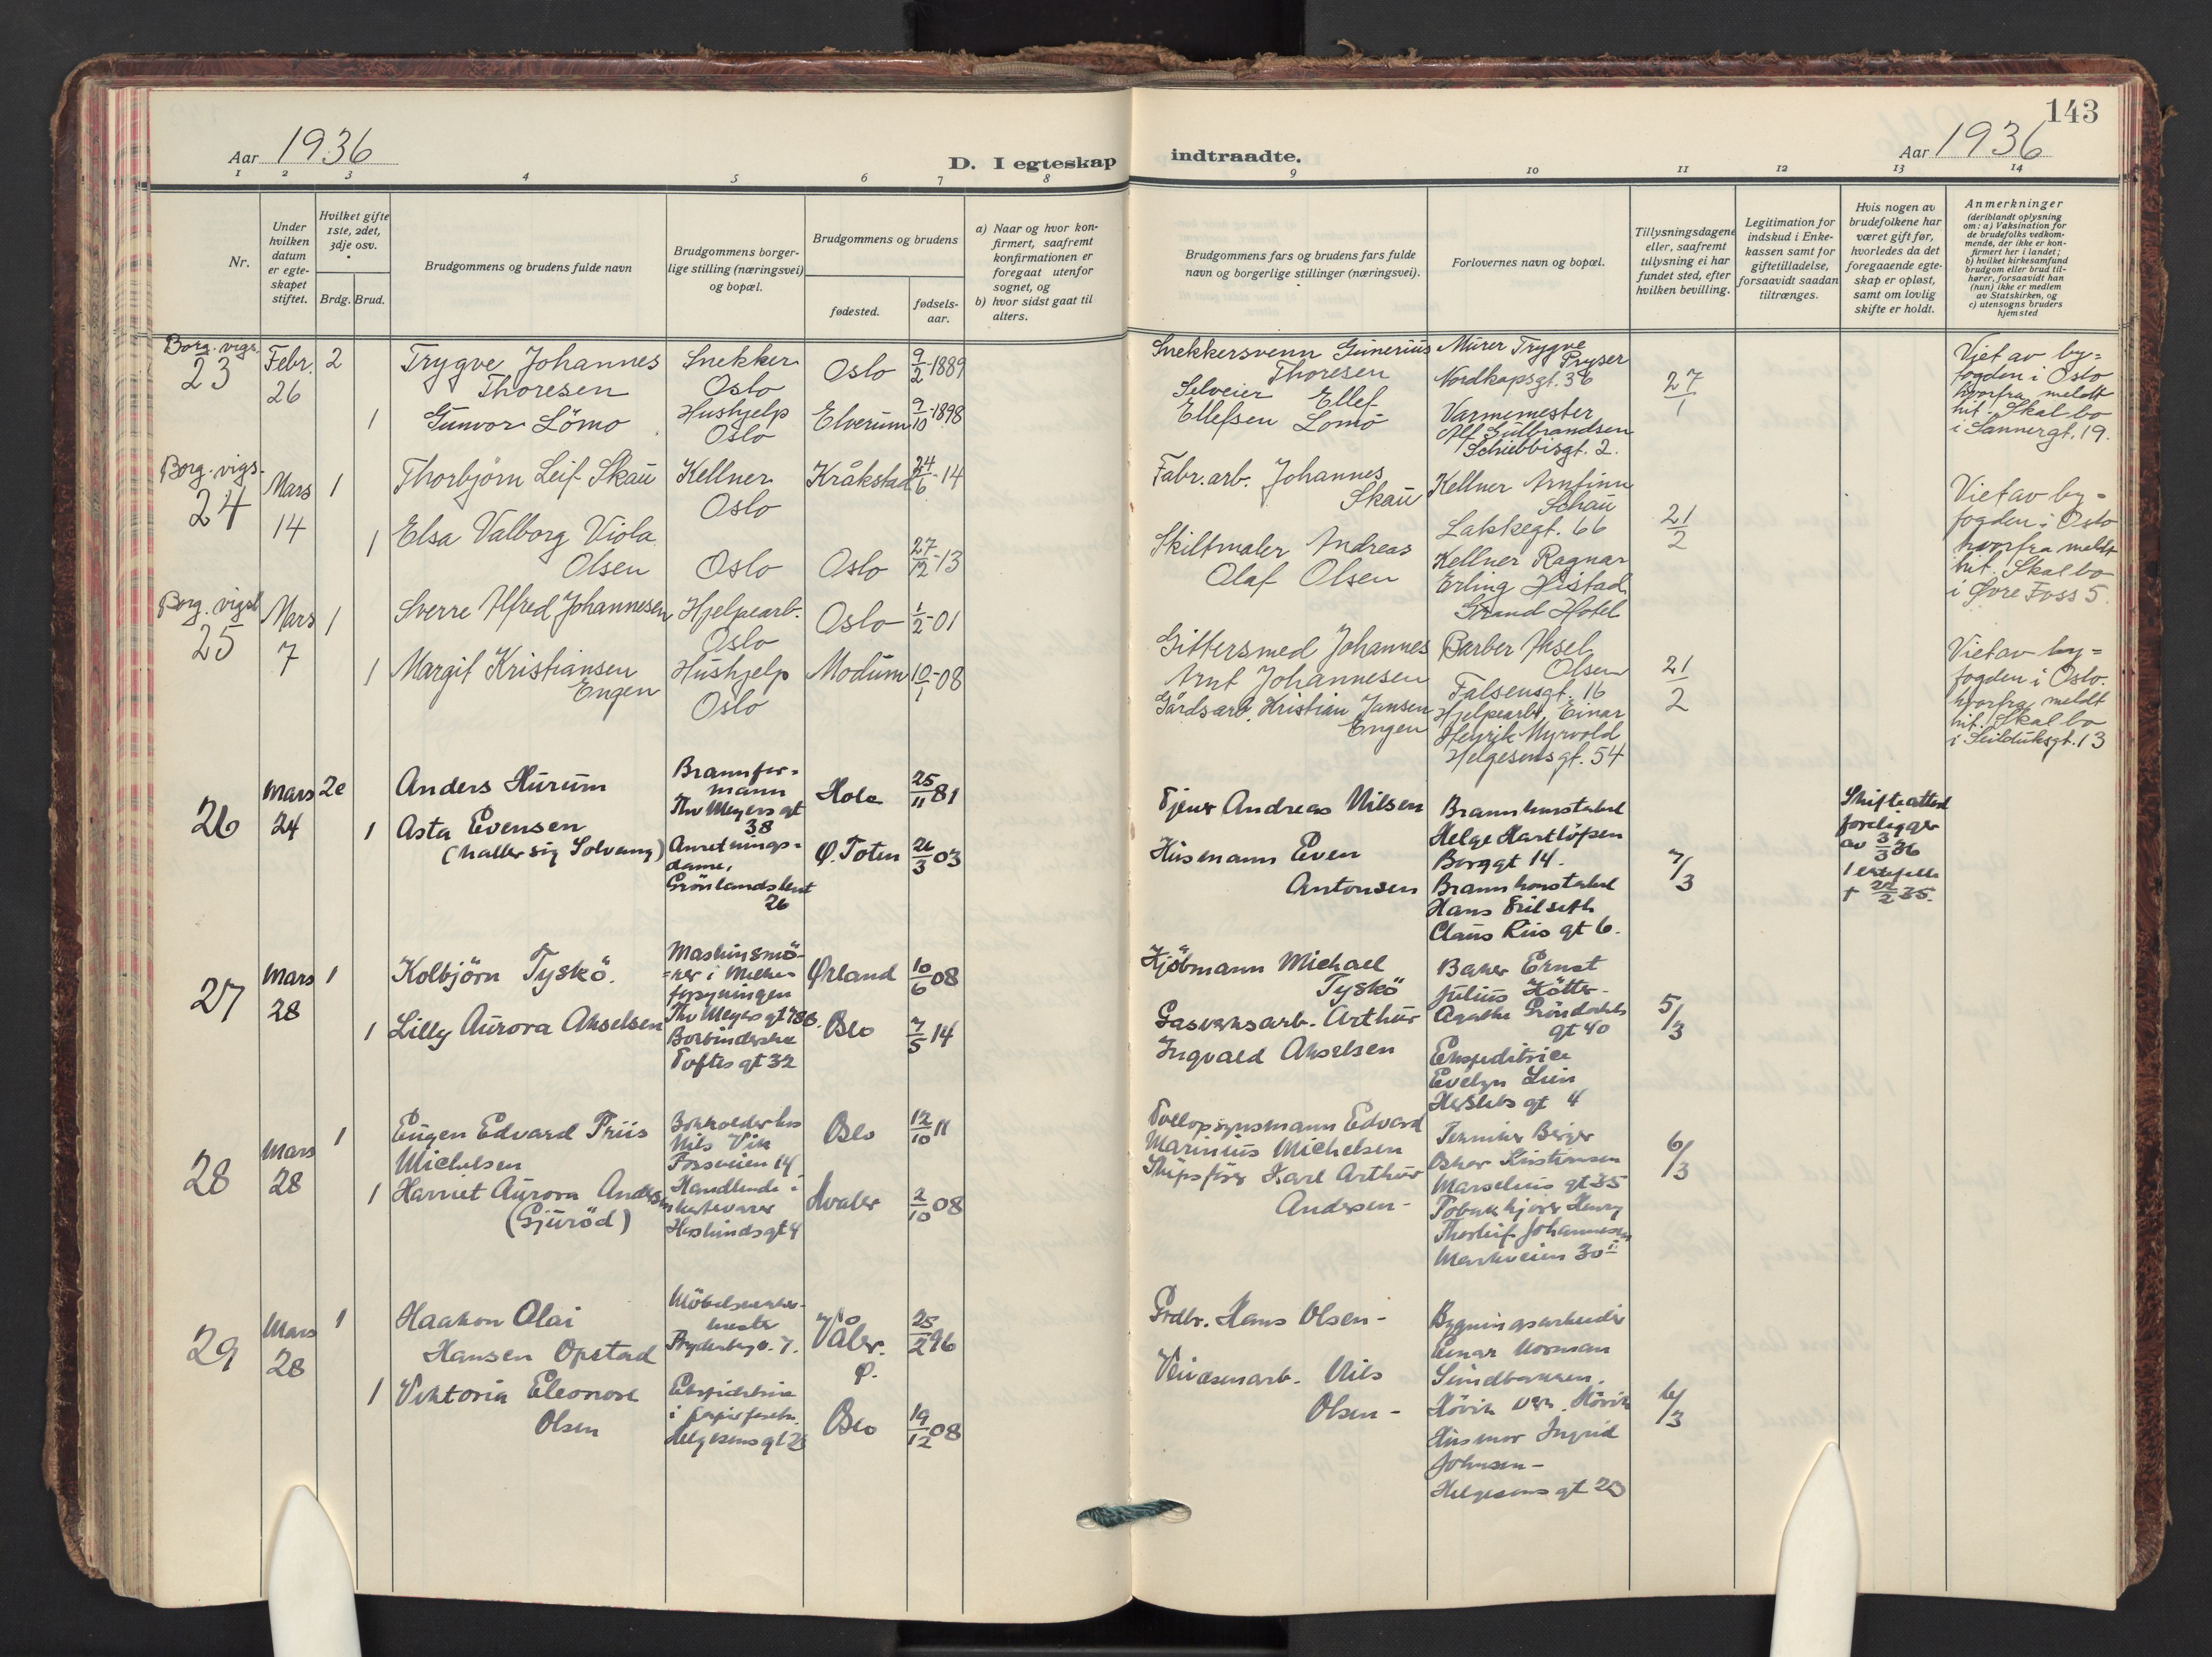 143
Aar 1936
D. I egteskap indtraadte.
Aar 1936
1 2 3 4 5 6 7 8 9 10 11 12 13 14
Nr.
Under hvilken datum er egteskapet stiftet.
Hvilket gifte 1ste, 2det, 3dje osv.
Brdg. Brud.
Brudgommens og brudens fulde navn
Brudgommens borgerlige stilling (næringsvei) og bopæl.
Brudgommens og brudens
fødested.
fødselsaar.
a) Naar og hvor konfirmert, saafremt konfirmationen er foregaat utenfor sognet, og
b) hvor sidst gaat til alters.
Brudgommens fars og brudens fars fulde navn og borgerlige stillinger (næringsvei).
Forlovernes navn og bopæl.
Tillysningsdagene eller, saafremt tillysning ei har fundet sted, efter hvilken bevilling.
Legitimation for indskud i Enkekassen samt for giftetilladelse, forsaavidt saadan tiltrænges.
Hvis nogen av brudefolkene har været gift før, hvorledes da det foregaaende egteskap er opløst, samt om lovlig skifte er holdt.
Anmerkninger
(deriblandt oplysning om: a) Vaksination for de brudefolks vedkommende, der ikke er konfirmert her i landet; b) hvilket kirkesamfund brudgom eller brud tilhører, forsaavidt han (hun) ikke er medlem av Statskirken, og c) utensogns bruders hjemsted
Borg. vigs.
23
Febr. 26
2
Trygve Johannes
Thoresen
Snekker
Oslo
Oslo
9/2-1889
1
Gunvor Lömo
Hushjelp
Oslo
Elverum
9/10-1898
Snekkersvenn Gunerius
Thoresen
Selveier Ellef
Ellefsen Lomö
Murer Trygve
Pryser
Nordkapsgt. 36
Varmemester
Alf Gulbrandsen
Schübbisgt. 2.
27/1
Viet av by=
fogden i Oslo
hvorfra meldt
hit. Skal bo
i Sannergt. 19.
Borg. vigs.
24
Mars 14
1
Thorbjörn Leif Skau
Kellner
Oslo
Kråkstad
24/6-14
1
Elsa Valborg Viola
Olsen
Oslo
Oslo
27/12-13
Fabr. arb. Johannes
Skau
Skiltmaler Andreas
Olaf Olsen
Kellner Arnfinn
Schau
Lakkegt. 66
Kellner Ragnar
Erling Histad
Grand Hotel
21/2
Viet av by=
fogden i Oslo
hvorfra meldt
hit. Skal bo
i Øvre Foss 5.
Borg. vigsl
25
Mars 7
1
Sverre Alfred Johannesen
Hjelpearb.
Oslo
Oslo
1/2-01
1
Margit Kristiansen
Engen
Hushjelp
Oslo
Modum
10/1-08
Gittersmed Johannes
Arnt Johannesen
Gårdsarb. Kristian Jansen
Engen
Barber Aksel
Olsen
Falsensgt. 16
Hjelpearb. Einar
Henrik Myrvold
Helgesensgt. 54
21/2
Viet av by=
fogden i Oslo.
hvorfra meldt
hit. Skal bo
i Seilduksgt. 13
26
Mars 24
2e
Anders Hurum
Brannfor=
mann
Thv Meyers gt
38
Hole
25/11 81
1
Asta Evensen
(kaller sig Solvang)
Anretnings=
dame,
Grönlandsleret
26
Ø. Toten
26/3 03
Tjener Andreas Nilsen
Husmann Even
Antonsen
Brannkonstabel
Helge Hartlöfsen
Borggt 14.
Brannkonstabel
Hans Frilseth
Claus Riis gt 6.
7/3
Skifteattest
foreligger
av 3/3 36
1 ektefelle
† 22/2 35.
27
Mars 28
1
Kolbjörn Tyskö.
Maskinsmö-
Thv Meyers gt 78B.
Ørland
10/6 08
1
Lilly Aurora Akselsen
Toftes gt 32
Oslo
7/5 14
Kjöbmann Michael
Tyskö
Gasverksarb. Arthur
Ingvald Akselsen
Baker Ernst
Julius Hötter-
Agathe Gröndahls
gt 40
Ekspeditrice
Evelyn Lien
Herslebs gt 4
5/3
28
Mars 28
1
Eugen Edvard Friis
Michelsen
Bokholder hos
Nils Vik
Fossveien 14
Oslo
12/10 11
1
Harriet Aurora Andersen
(Gjuröd)
Handlende i
Hvaler
2/10 08
Tollopsynsmann Edvard
Marinius Michelsen
Skipsförer Karl Arthur
Andersen-
Tekniker Birger
Oskar Kristiansen
Marselius gt 35
Henry
Thorleif Johannesen
Markveien 30
6/3
29
Mars 28
1
Haakon Olai
Hansen Opstad
Möbelsnekker-
mester
Våler.
Ø.
25/2 96
1
Viktoria Eleonore
Olsen
Ekspeditrise
Helgesens gt 23
Oslo
19/12 08
Grdbr. Hans Olsen-
Nils
Olsen-
Bygningsarbeider
Einar Norman
Sundbakken.
Hövik verk. Hövik
Husmor Ingrid
Johnsen-
Helgesens gt 23
6/3